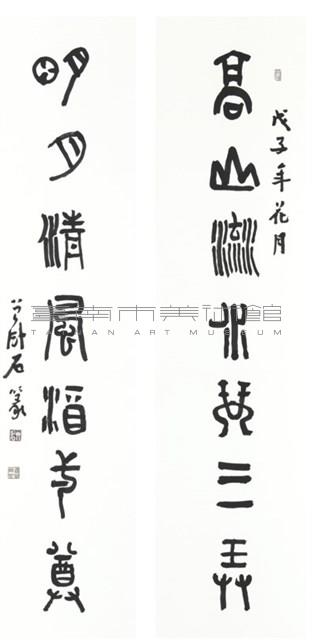 戊子年花月
高山流水琴三弄
明月清風酒尊
臥石篆
臺南市美術館
TAINAN ART MUSEUM